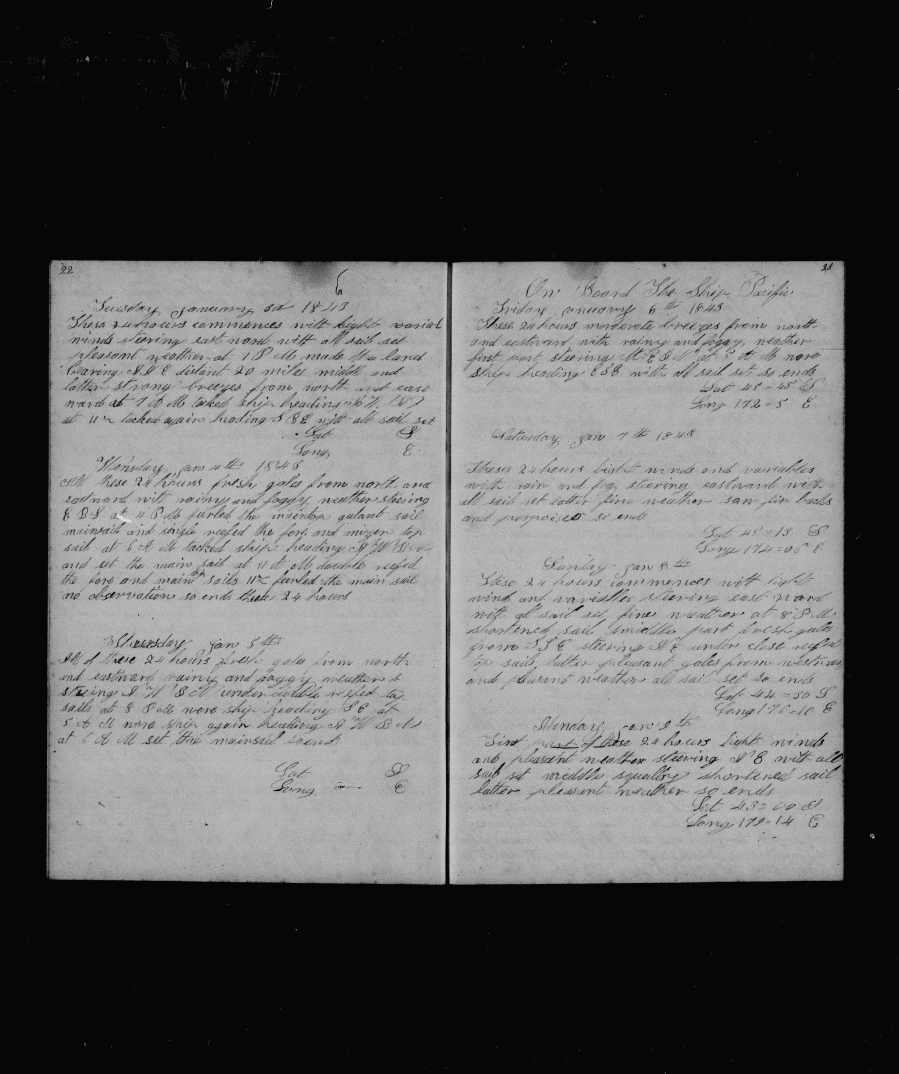 22
6
Tuesday January 3d 1843
These 24 hours commences with light varial
winds steering east ward with all sail set
pleasant weather at 1 P M made the land
bearing distant 20 miles middle and
latter strong breezes from north and east
ward at 7 A M tacked ship heading
at 11 tacked again heading S E with all sail set
Lat S
Long E
Wensday jan 4th 1843
All these 24 hours fresh gales from north and
eastward with rainy and foggy weather steering
at 4 P M furled the maintop galant sail
mainsail and single reefed the fore and mizen top
sail at 6 A M tacked ship heading
and set the main sail at 11 A M double reefed
the fore and main top sails furled the main sail
no observation so ends these 24 hours
Thursday jan 5th
All of these 24 hours fresh gales from north
and eastward rainy and foggy weather
steeing under double reefed top
sails at 8 P M wore ship heading S E at
5 A M wore ship again heading
at 6 A M set the mainsail so ends
Lat S
Long E
23
On Board The Ship Pacific
Friday january 6th 1843
These 24 hours moderate breezes from north
and eastward with rainy and foggy weather
first part steering at A M wore
ship heading ESE with all sail set so ends
Lat 45=48 S
Long 172=5 E
Saturday jan 7th 1843
These 24 hours light winds and variables
with rain and fog steering eastward with
all sail set latter fine weather saw fin backs
and porpoises so ends
Lat 45=13 S
Long 174=06 E
Sunday jan 8th
These 24 hours commences with light
wind and variables steering east ward
with all sail set fine weather at 8 P M
shortened sail middle part fresh gales
from S S E steering N E under close reefed
top sails latter pleasant gales from westward
and plesent weather all sail set so ends
Lat 44=50 S
Long 176=10 E
Monday jan 9th
First part of these 24 hours light winds
and pleasant weather steering N E with all
sail set middle squally shortened sail
latter pleasent weather so ends
Lat 43=00 S
Long 179=14 E